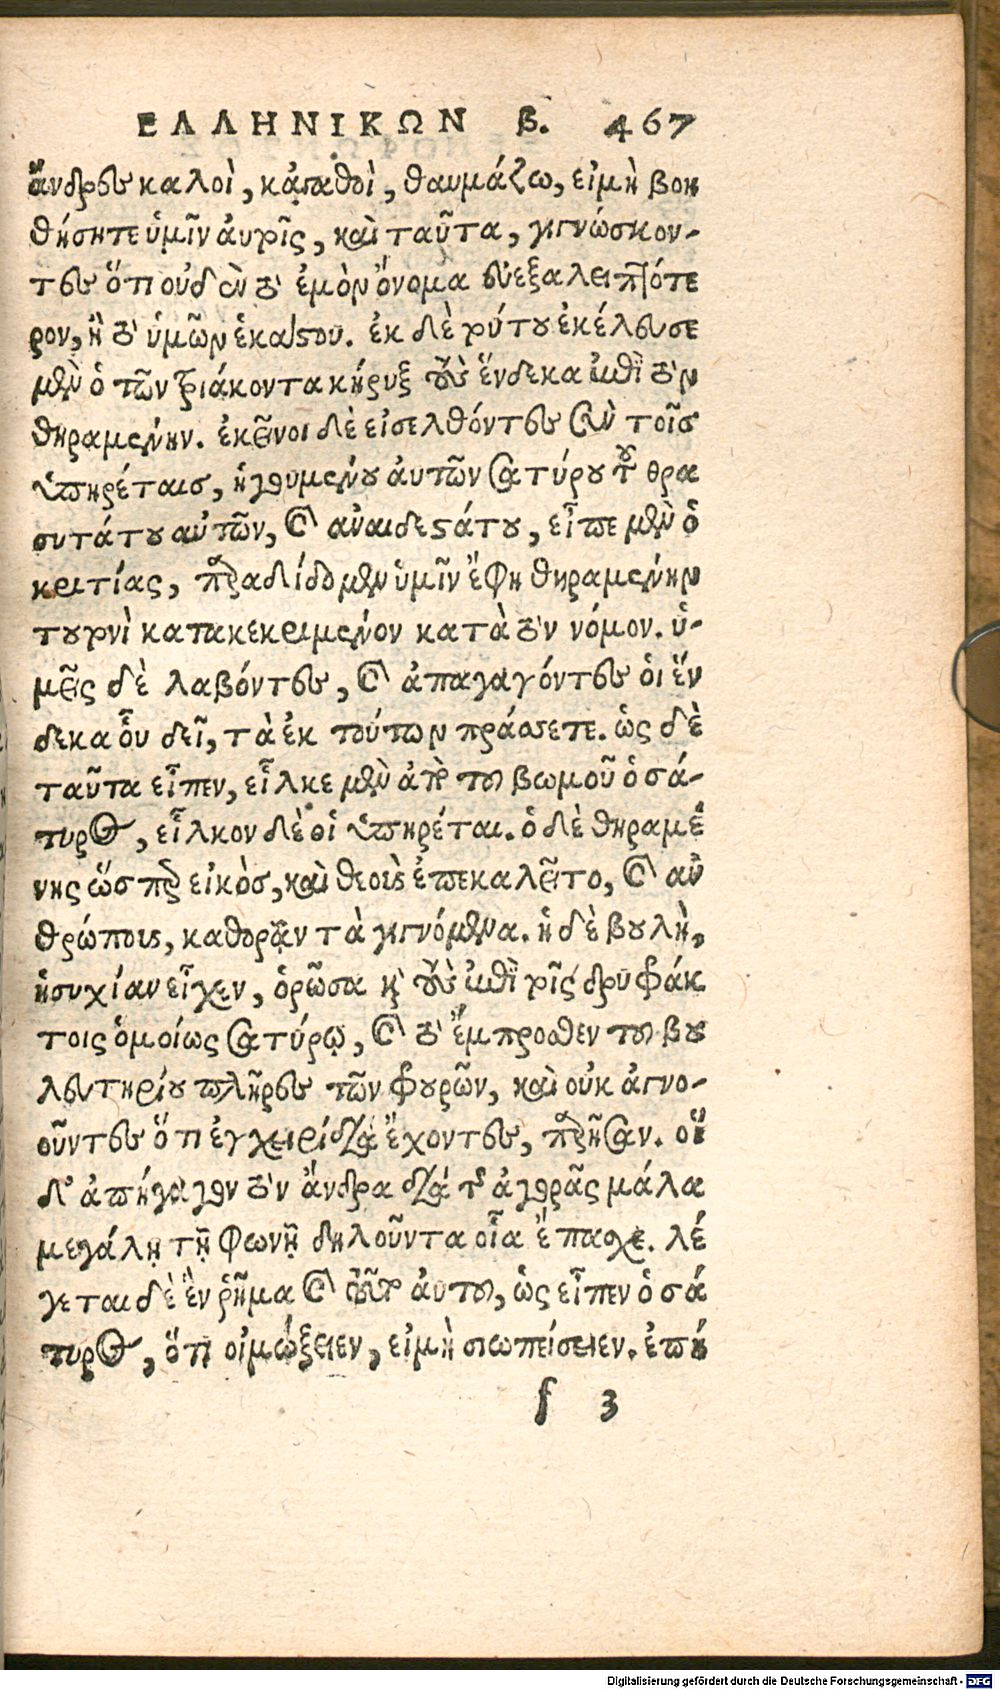 ΕΛΛΗΝΙΚΩΝ β. 467
ἄνδρες καλοὶ, κᾀγαθοὶ, θαυμάζω, εἰ μὴ βοη
θήσητε ὑμῖν ἀυτοῖς, καὶ ταῦτα, γιγνώσκον-
τες ὅτι οὐδὲν τὸ ἐμὸν ὄνομα εὐεξαλειπτότε
ρον, ἢ τὸ ὑμῶν ἑκάστου. ἐκ δὲ τούτου ἐκέλευσε
μὲν ὁ τῶν τριάκοντα κήρυξ τοὺς ἕνδεκα ἐπὶ τὸν
θηραμένην. ἐκεῖνοι δὲ εἰσελθόντες σὺν τοῖς
ὑπηρέταις, ἡγουμένου ἀυτῶν σατύρου τοῦ θρα
συτάτου αὐτῶν, καὶ αναιδεστάτου, εἶπε μὲν ὁ
κριτίας, παραδίδομεν ὑμῖν ἔφη θηραμένην
τουτονὶ κατακεκριμένον κατὰ τὸν νόμον. ὑ-
μεῖς δὲ λαβόντες, καὶ ἀπαγαγόντες οἱ ἕν
δεκα οὗ δεῖ, τὰ ἐκ τούτων πράσσετε. ὡς δὲ
ταῦτα εἶπεν, εἷλκε μὲν ἀπὸ τοῦ βωμοῦ ὁ σά-
τυρος, εἷλκον δὲ οἱ ὑπηρέται. ὁ δὲ θηραμέ
νης ὥσπερ εἰκὸς, καὶ θεοὺς ἐπεκαλεῖτο, καὶ ἀν
θρώπους, καθορᾷν τὰ γιγνόμενα. ἡ δὲ βουλὴ,
ἡσυχίαν εἶχεν, ὁρῶσα καὶ τοὺς ἐπὶ τοῖς δρυφάκ
τοις ὁμοίως σατύρῳ, καὶ τὸ ἔμπροσθεν τοῦ βου
λευτηρίου πλῆρες τῶν φρουρῶν, καὶ οὐκ ἀγνο-
οῦντες ὅτι ἐγχειρίδια ἔχοντες, παρῆσαν. οἵ
δ' ἀπήγαγον τὸν ἄνδρα διὰ τῆς ἀγορᾶς μάλα
μεγάλῃ τῇ φωνῇ δηλοῦντα οἷα ἔπασχε. λέ
γεται δὲ ἓν ῥῆμα καὶ τοῦτο ἀυτοῦ, ὡς εἶπεν ὁ σά
τυρος, ὅτι οἰμώξειεν, εἰ μὴ σιωπείσειεν. ἐπή
f 3
Digitalisierung gefördert durch die Deutsche Forschungsgemeinschaft - DFG